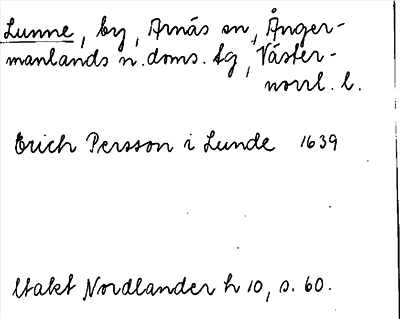 Lunne, by, Arnäs sn, Ånger-
manlands n. doms. tg, Väster-
norrl. l.
Erich Persson i Lunde 1639
Utakt Nordlander h 10, s. 60.